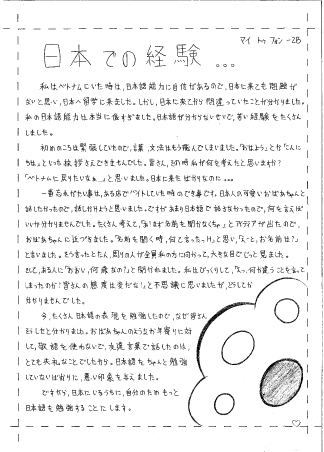 マイ トゥ フォン -2B
日本での経験...
私はベトナムにいた時は、日本語能力に自信があるので、日本に来ても問題が
ないと思い、日本へ留学に来ました。しかし、日本に来てから間違っていたことが分かりました。
私の日本語能力は本当に低すぎました。日本語が分からないせいで、苦い経験をたくさん
しました。
初めのころは緊張していたので、言葉、文法はもう飛んでしまいました。「おはよう」とか「こんに
ちは」といった挨拶さえできませんでした。皆さん、その時私が何を考えたと思いますか?
「ベトナムに戻りたいなぁ…」と思いました。日本に来たばかりなのに...
一番忘れがたい事は、ある店でバイトしていた時のでき事です。日本人の可愛いおばあちゃんと
話したかったので、話しかけようと思いました。ですがあまり日本語で話さなかったので、何を言えば
いいか分かりませんでした。たくさん考えて、「あ!まず名前を聞かなくちゃ」とアイデアが出たので、
おばあちゃんに近づきました。「名前を聞く時、何と言ったっけ」と思い、「えーと、お名前は?」
と言いました。そう言ったとたん、周りの人が全員私の方に向かって、大きな目でじっと見ました。
そして、ある人に「おおい、何歳なの?」と聞かれました。私はびっくりして、「えっ、何か違うことを言って
しまったのか?皆さんの態度は変だな!」と不思議に思いましたが、どうしても
分かりませんでした。
今、たくさん日本語の表現を勉強したので、なぜ皆さんが
そうしたと分かりました。おばあちゃんのようなお年寄りに対
して、敬語を使わないで、友達言葉で話したのは、
とても失礼なことでしたから。日本語をちゃんと勉強
していないばかりに、悪い印象を与えました。
ですから、日本にいるうちに、自分のためもっと
日本語を勉強することにします。